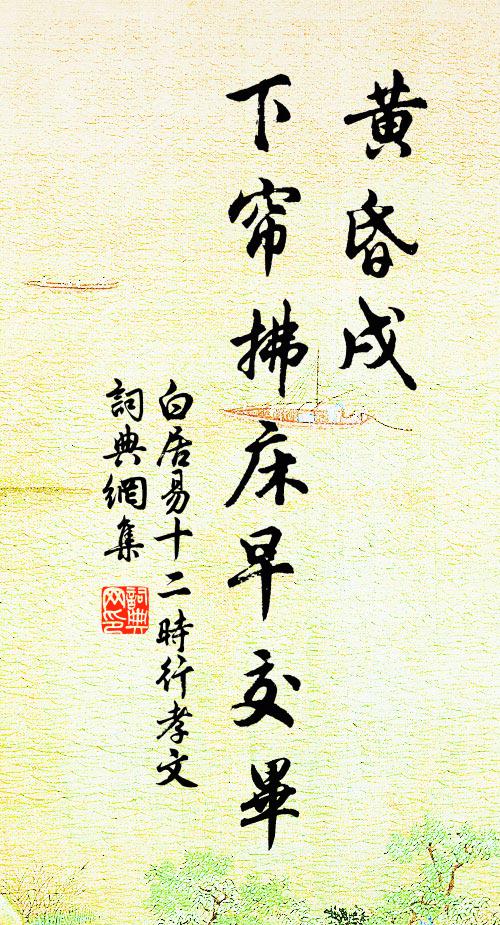 黄昏戌
下帘拂床早交畢
白居易十二時行孝文
詞典網集
詞典
网印